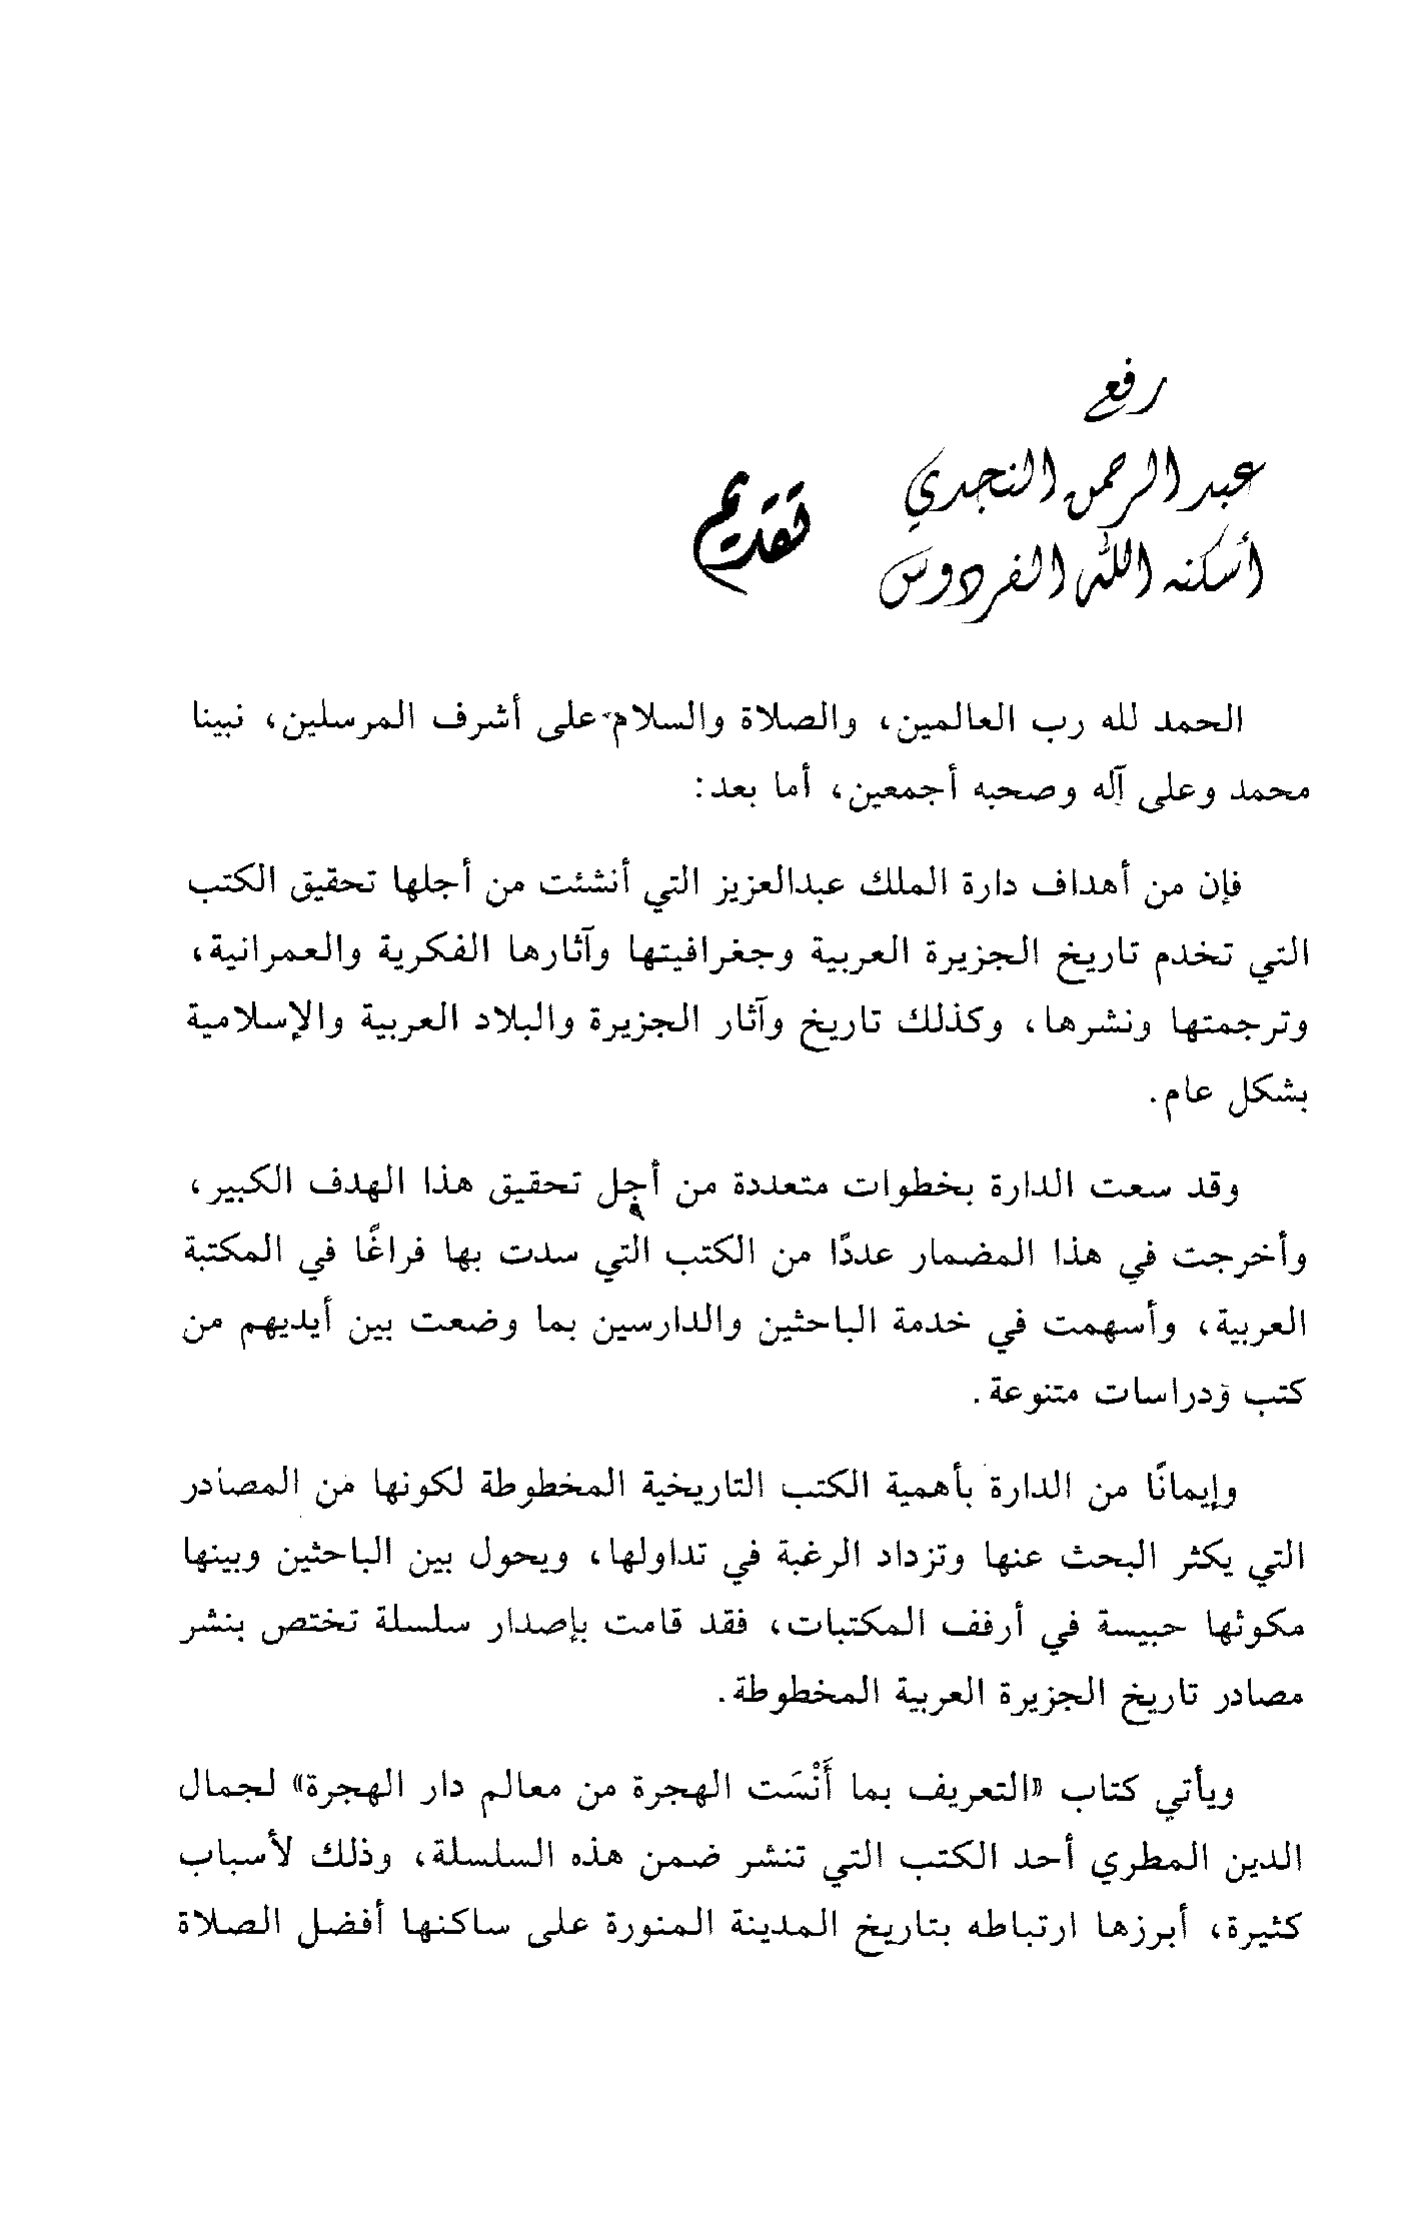 رفع
عبد الرحمن النجدي
أسكنه الله الفردوس
تقديم
الحمد لله رب العالمين، والصلاة والسلام على أشرف المرسلين، نبينا
محمد وعلى آله وصحبه أجمعين، أما بعد:
فإن من أهداف دارة الملك عبدالعزيز التي أنشئت من أجلها تحقيق الكتب
التي تخدم تاريخ الجزيرة العربية وجغرافيتها وآثارها الفكرية والعمرانية،
وترجمتها ونشرها، وكذلك تاريخ وآثار الجزيرة والبلاد العربية والإسلامية
بشكل عام.
وقد سعت الدارة بخطوات متعددة من أجل تحقيق هذا الهدف الكبير،
وأخرجت في هذا المضمار عددًا من الكتب التي سدت بها فراغًا في المكتبة
العربية، وأسهمت في خدمة الباحثين والدارسين بما وضعت بين أيديهم من
كتب ودراسات متنوعة.
وإيمانًا من الدارة بأهمية الكتب التاريخية المخطوطة لكونها من المصادر
التي يكثر البحث عنها وتزداد الرغبة في تداولها، ويحول بين الباحثين وبينها
مكوثها حبيسة في أرفف المكتبات، فقد قامت بإصدار سلسلة تختص بنشر
مصادر تاريخ الجزيرة العربية المخطوطة.
ويأتي كتاب «التعريف بما أَنْسَت الهجرة من معالم دار الهجرة» لجمال
الدين المطري أحد الكتب التي تنشر ضمن هذه السلسلة، وذلك لأسباب
كثيرة، أبرزها ارتباطه بتاريخ المدينة المنورة على ساكنها أفضل الصلاة